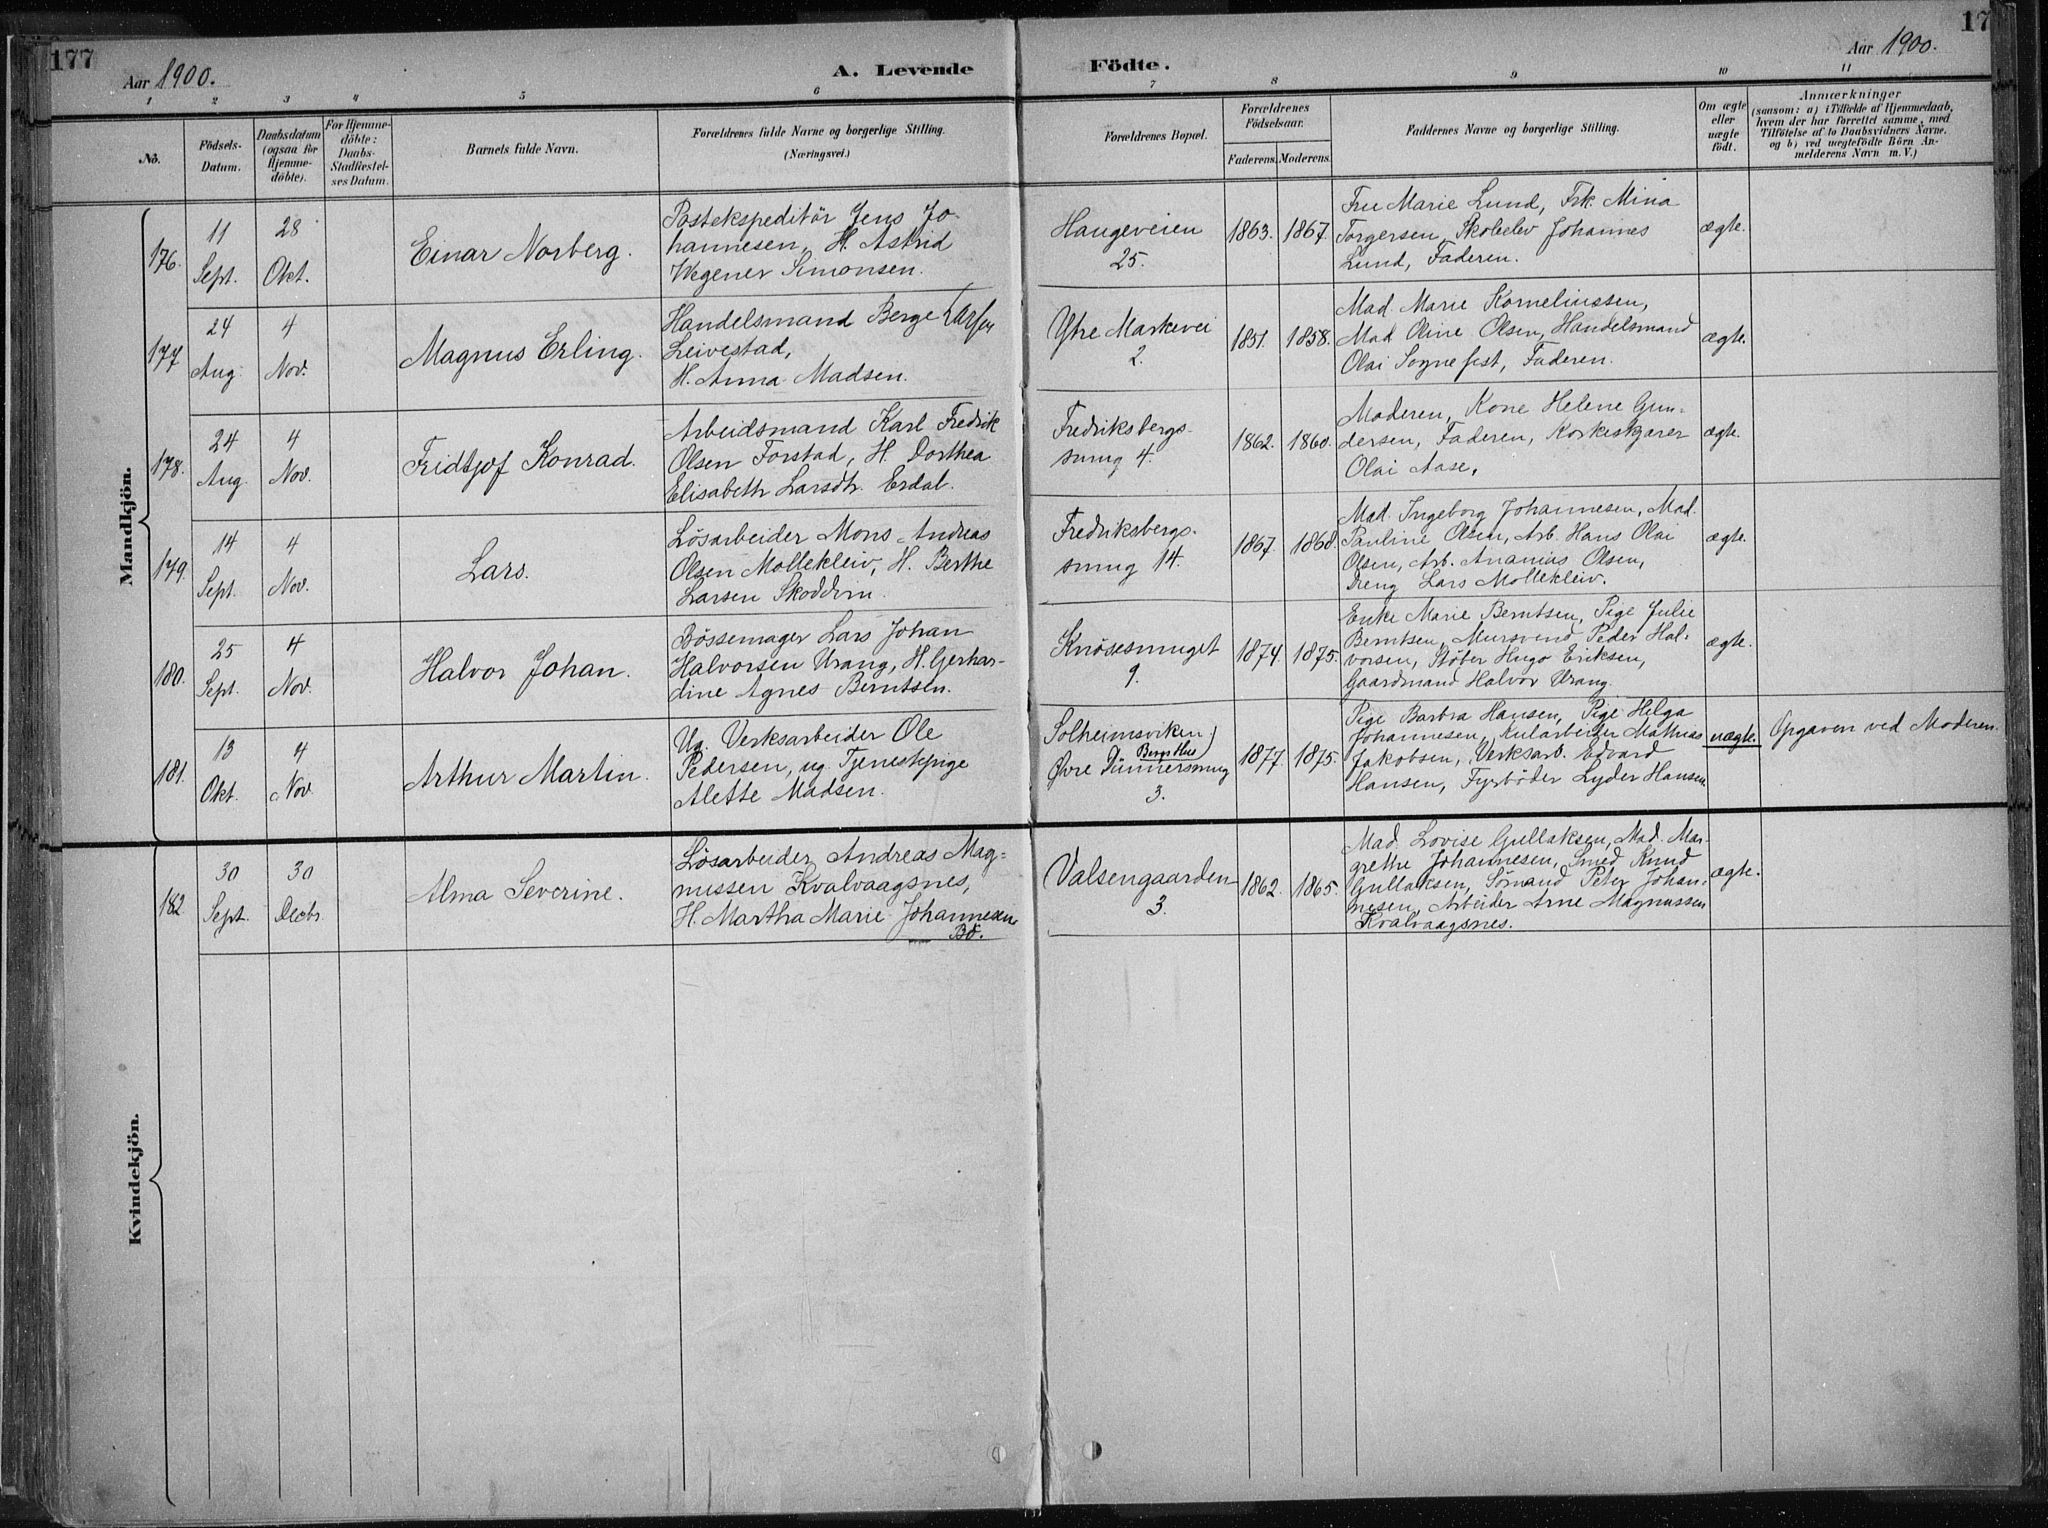 177
Aar 1900.
A. Levende
Födte.
Aar 1900.
17
1 2 3 4 5 6 7 8 9 10 11
No.
Födsels-
Datum.
Daabsdatum
(ogsaa for
Hjemme-
döbte).
For Hjemme-
döbte:
Daabs-
Stadfæstel-
ses Datum.
Barnets fulde Navn.
Forældrenes fulde Navne og borgerlige Stilling.
(Næringsvei.)
Forældrenes Bopæl.
Forældrenes
Födselsaar.
Faderens. Moderens.
Faddernes Navne og borgerlige Stilling.
Om ægte
eller
uægte
födt.
Anmærkninger
(saasom: a) i Tilfælde af Hjemmedaab,
hvem der har forrettet samme, med
Tilföielse af to Daabsvidners Navne,
og b) ved uægtefödte Börn An-
melderens Navn m. V.)
Mandkjön.
176.
11
Sept.
28
Okt.
Einar Norberg.
Postekspeditör Jens Jo-
hannesen, H. Astrid
Wegener Simonsen.
Haugeveien
25.
1863. 1867.
Fru Marie Lund, Frk. Mina
Torgersen, Skoleelev Johannes
Lund, Faderen.
ægte.
177
24
Aug.
4
Nov.
Magnus Erling.
Handelsmand Berge Larsen
Leivestad,
H. Anna Madsen.
Ytre Markevei
2.
1851. 1858.
Mad. Marie Korneliussen,
Mad Oline Olsen, Handelsmand
Olai Sognefest, Faderen.
ægte.
178.
24
Aug.
4
Nov.
Fridtjof Konrad.
Arbeidsmand Karl Fredrik
Olsen Forstad, H. Dorthea
Elisabeth Larsdtr. Erdal.
Fredriksbergs-
smug 4.
1862. 1860.
Moderen, Kone Helene Gun-
dersen, Faderen, Korkeskjærer
Olai Aase,
ægte.
179.
14
Sept.
4
Nov.
Lars.
Lösarbeider Mons Andreas
Olsen Mollekleiv, H. Berthe
Larsen Skoddvin.
Fredriksbergs-
smug 14.
1867. 1868.
Mad. Ingeborg Johannesen, Mad.
Pauline Olsen, Arb. Hans Olai
Olsen, Arb. Ananias Olsen,
Dreng Lars Mollekleiv.
ægte.
180.
25
Sept.
4
Nov.
Halvor Johan.
Bössemager Lars Johan
Halvorsen Urang, H. Gerhar-
dine Agnes Berntsen.
Knösesmuget
9.
1874 1875.
Enke Marie Berntsen, Pige Julie
Berntsen, Mursvend Peder Hal-
vorsen, Støber Hugo Eriksen,
Gaardmand Halvor Urang.
ægte.
181.
13
Okt.
4
Nov.
Arthur Martin.
Ug. Verksarbeider Ole
Pedersen, ug. Tjenestepige
Alette Madsen.
Solheimsviken
Øvre Dünnersmug
3.
1877. 1875.
Pige Barbra Hansen, Pige Helga
Johannesen, Kularbeider Mathias
Jakobsen, Verksarb. Edvard
Hansen, Fyrbøder Lyder Hansen.
uægte.
Opgaven ved Moderen.
Kvindekjön.
182
30
Sept.
30
Decbr.
Alma Severine.
Lösarbeider Andreas Mag-
nussen Kvalvaagsnes,
H. Martha Marie Johannesen
Bö.
Valsengaarden
3.
1862. 1865.
Mad. Lovise Gullaksen, Mad. Mar-
grethe Johannesen, Smed Knud
Gullaksen, Sømand Peter Johan-
nesen, Arbeider Arne Magnussen
Kvalvaagsnes.
ægte.